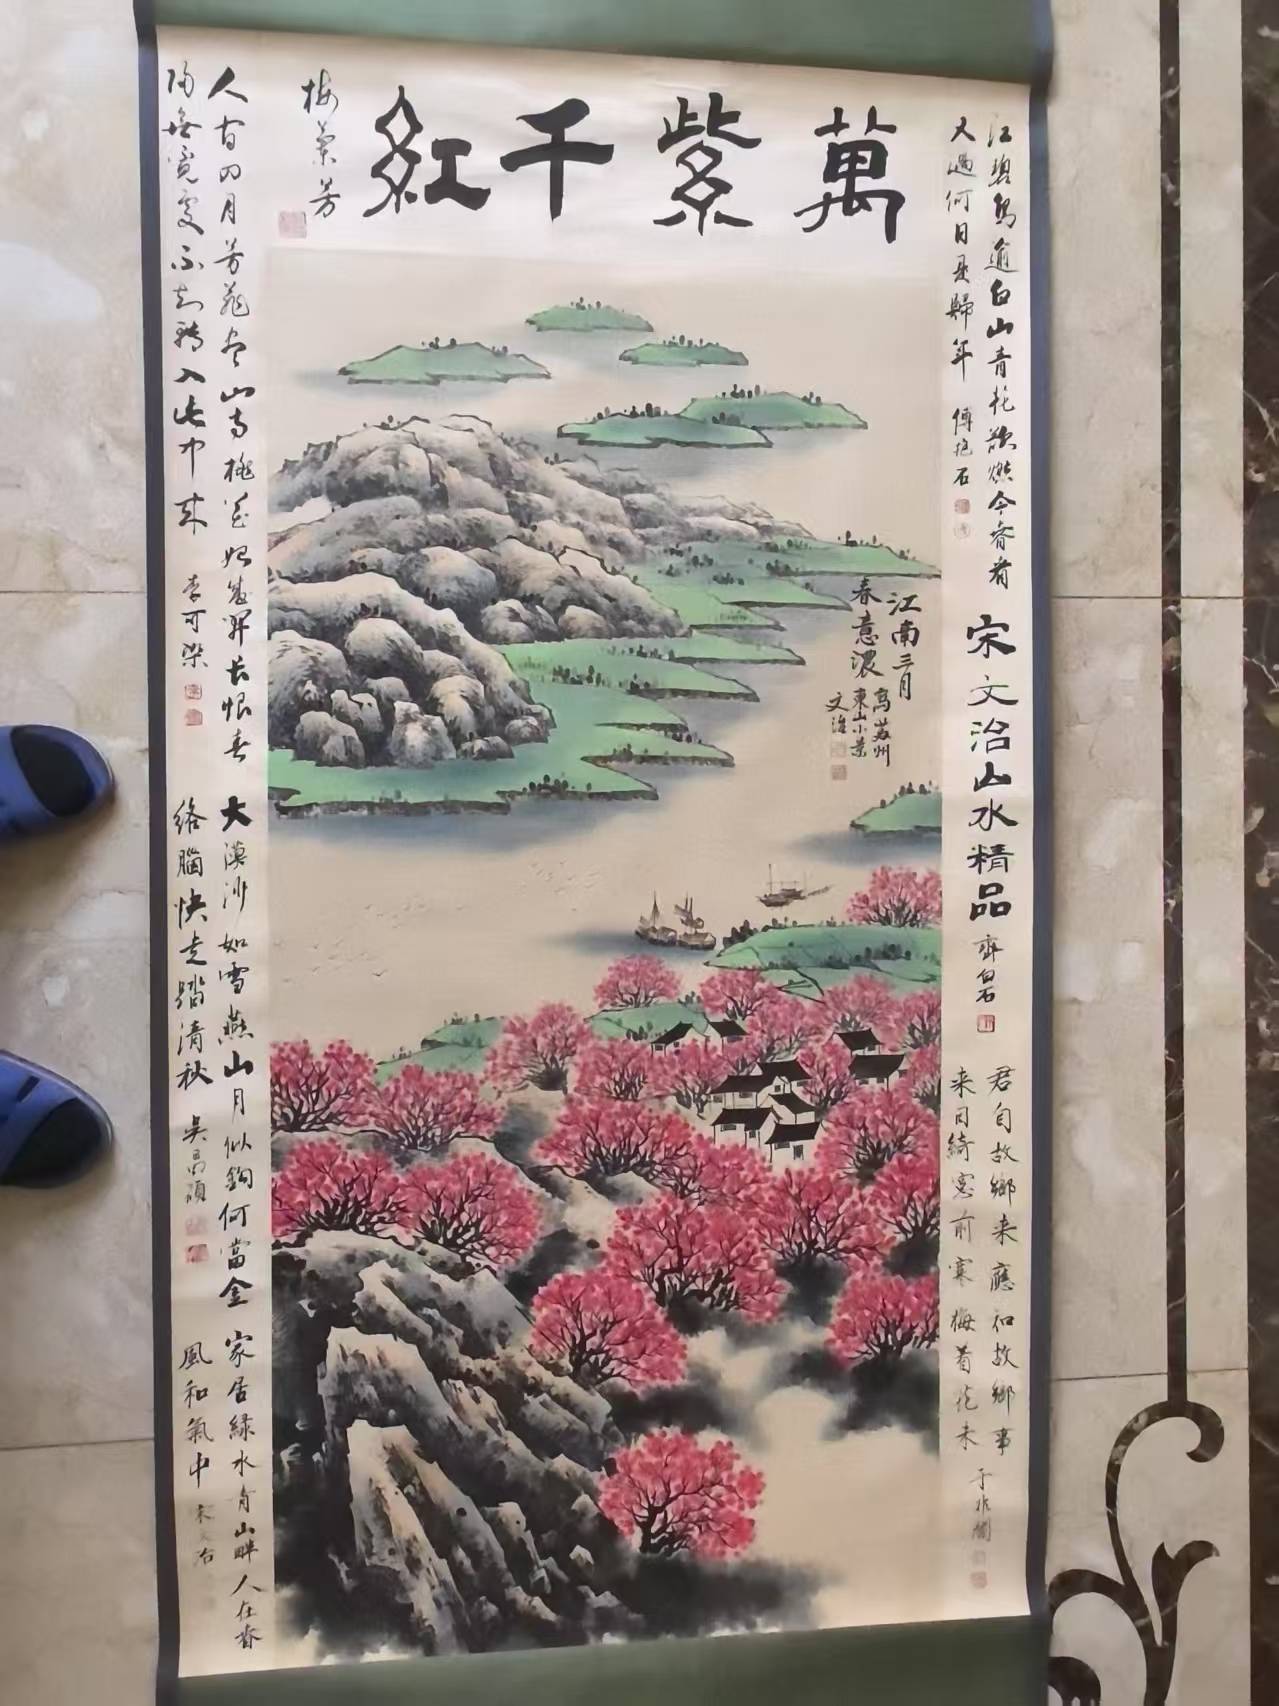 萬紫千紅
梅蘭芳
江碧鳥逾白山青花欲燃今春看
又過何日是歸年
傅抱石
宋文治山水精品
齊白石
君自故鄉来應知故鄉事
来日綺窓前寒梅着花未
于非闇
江南三月
春意濃
寫蘇州
東山小景
文治
人间四月芳菲尽山寺桃花始盛開长恨春
歸無覓處不知轉入此中来
李可染
大漠沙如雪燕山月似鈎何當金
絡腦快走踏清秋
吳昌碩
家居緑水青山畔人在春
風和氣中
宋文治